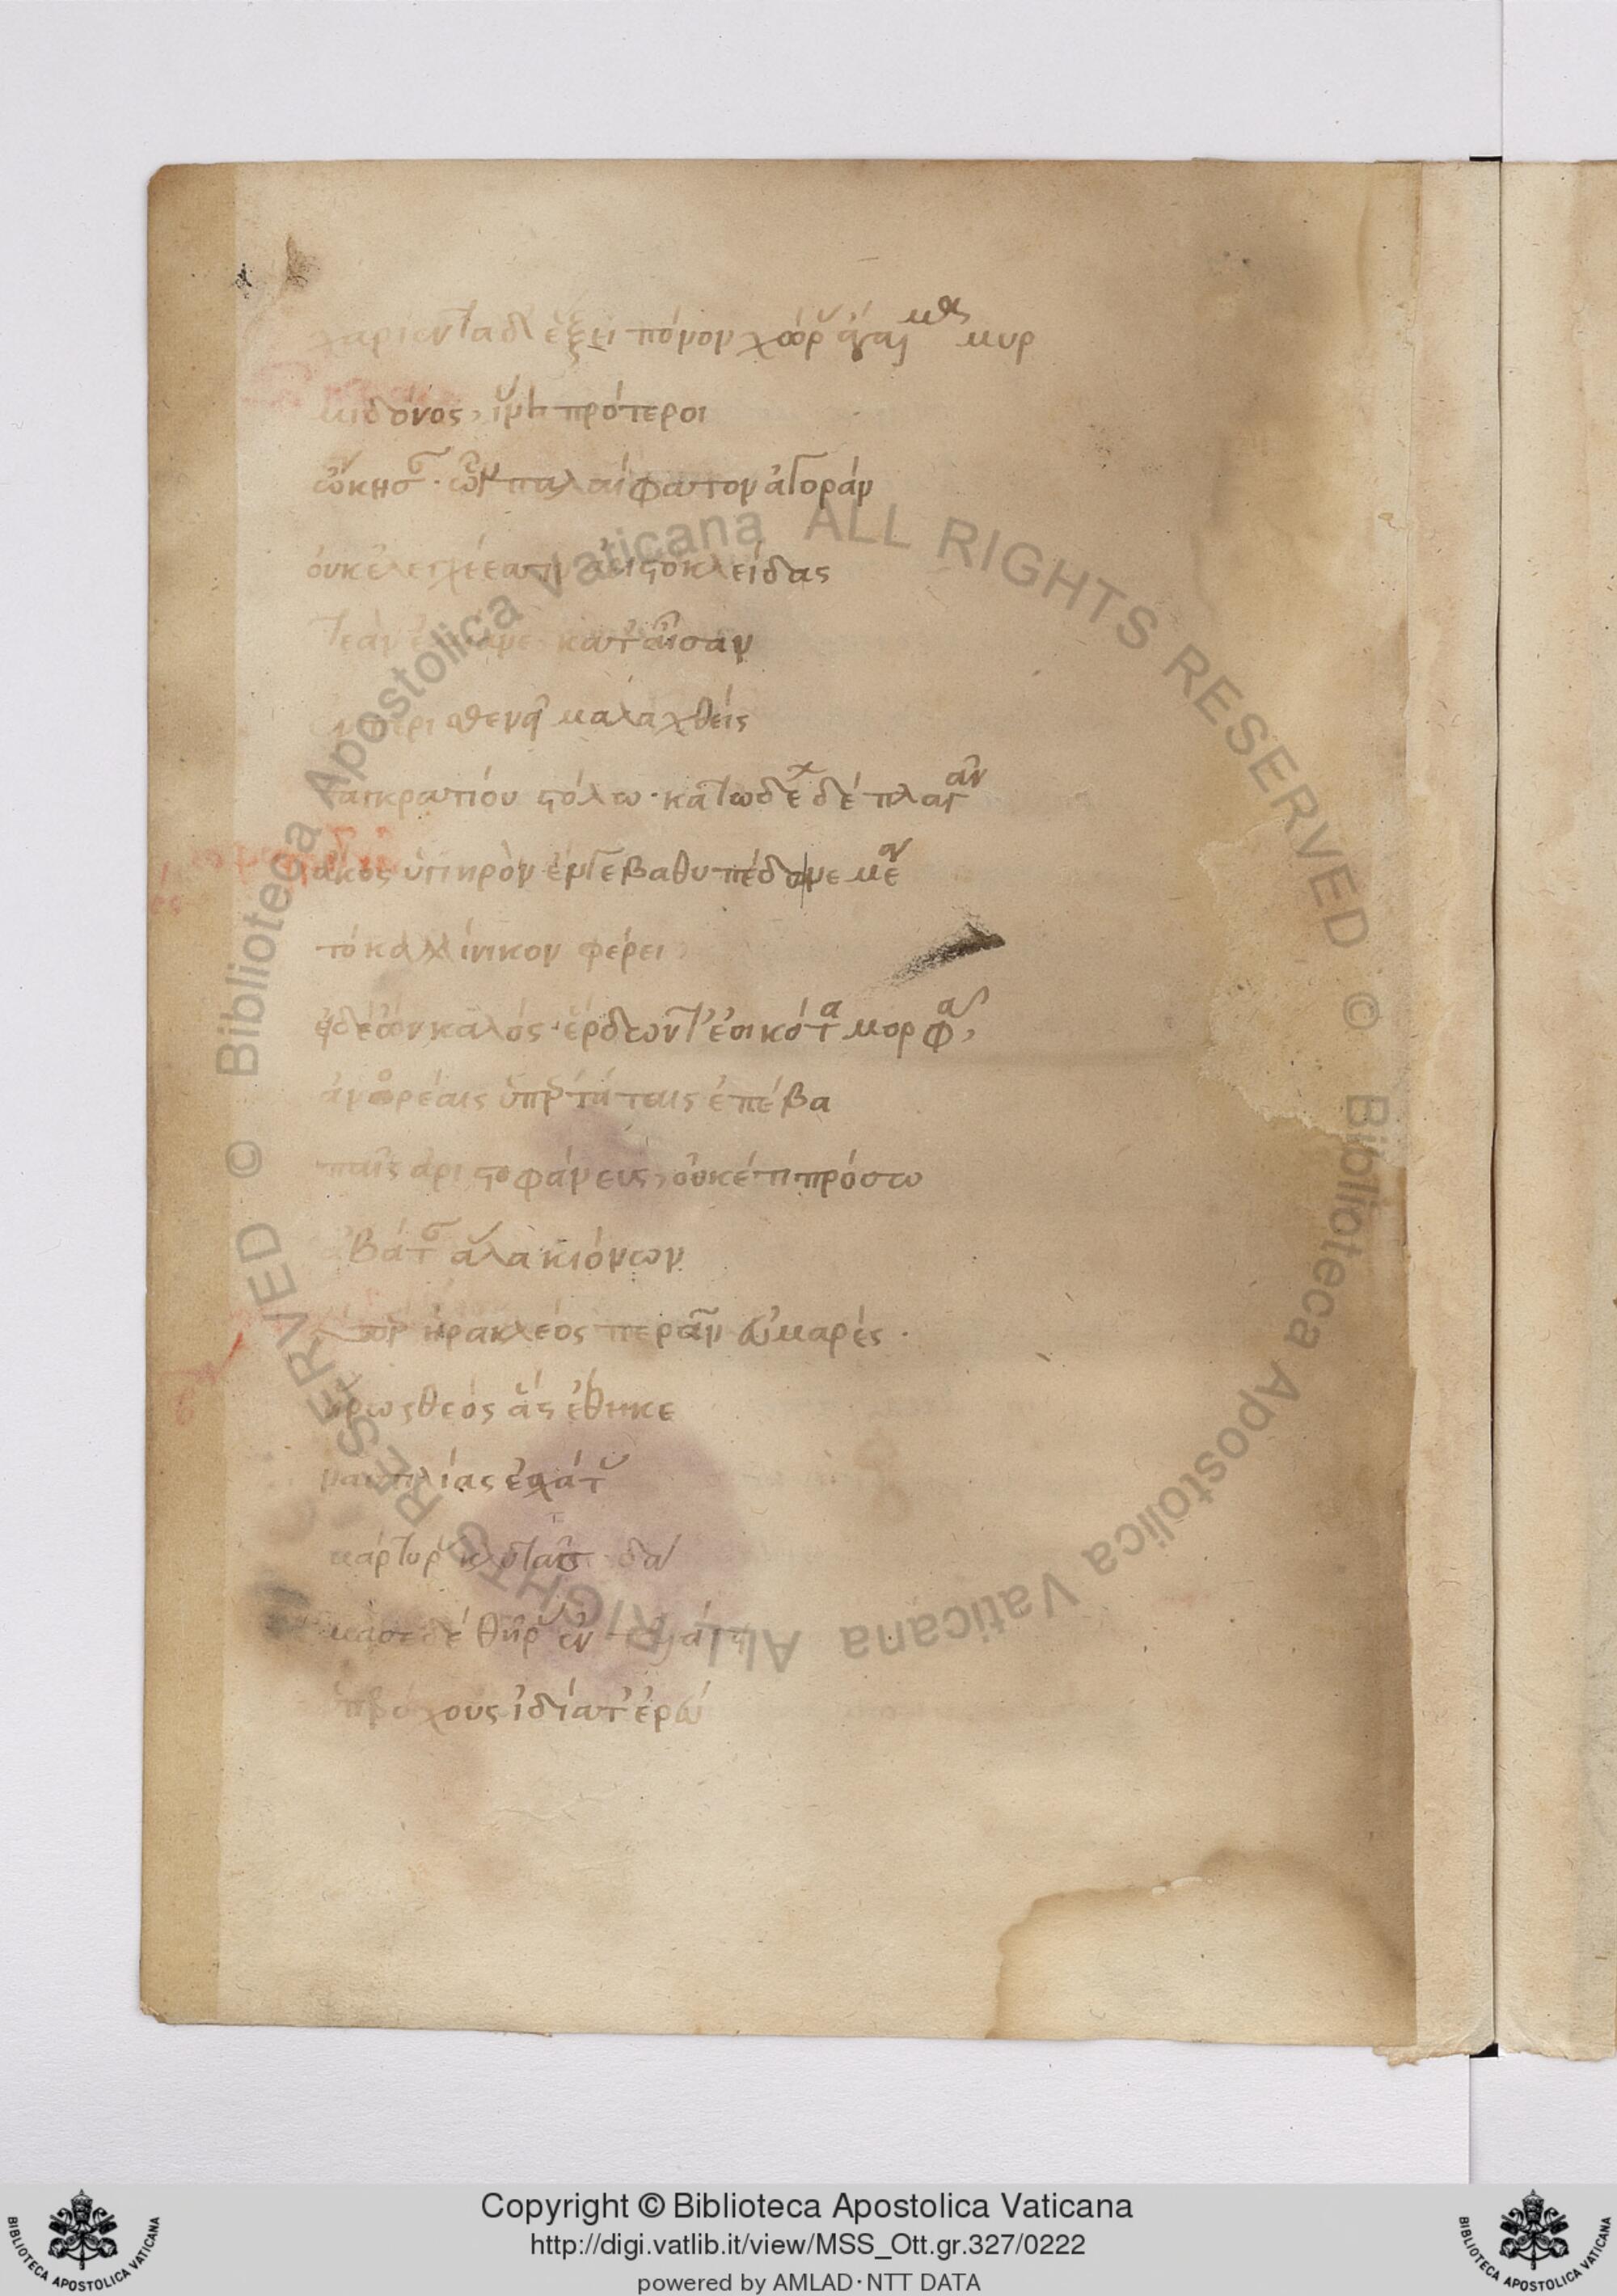 χαρίεντα δ' ἕξει πόνον χώρας ἄγαλμα μυρ
μιδόνες, ἵνα πρότεροι
ᾤκησαν· ὧν παλαίφατον ἀγορὰν
οὐκ ἐλεγχέεσσιν ἀριστοκλείδας
τεὰν κατ' αἶσαν
περισθενεῖ μαλαχθεὶς
παγκρατίου στόλω· καματωδέων δὲ πλαγᾶν
ἄκος ὑγιηρὸν ἔν γε βαθυπέδω νεμέα
τὸ καλλίνικον φέρει
εἰ δ' ἐὼν καλός· ἔρδων τ' ἐοικότα μορφᾶ,
ἀνορέαις ὑπερτάταις ἐπέβα
παῖς ἀριστοφάνευς, οὐκέτι πρόσω
ἀβάταν ἅλα κιόνων
ὑπὲρ ἡρακλέος περᾶν εὐμαρές·
ἥρως θεὸς ἃς ἔθηκε
ναυτιλίας ἐσχάτας
μάρτυρας κλυτάς· δά
μασε δὲ θῆρας ἐν
ὑπερόχους ἰδία τ' ἐρεύ
ALL RIGHTS RESERVED © Biblioteca Apostolica Vaticana
ALL RIGHTS RESERVED © Biblioteca Apostolica Vaticana
Copyright © Biblioteca Apostolica Vaticana
http://digi.vatlib.it/view/MSS_Ott.gr.327/0222
powered by AMLAD · NTT DATA
BIBLIOTECA APOSTOLICA VATICANA
BIBLIOTECA APOSTOLICA VATICANA